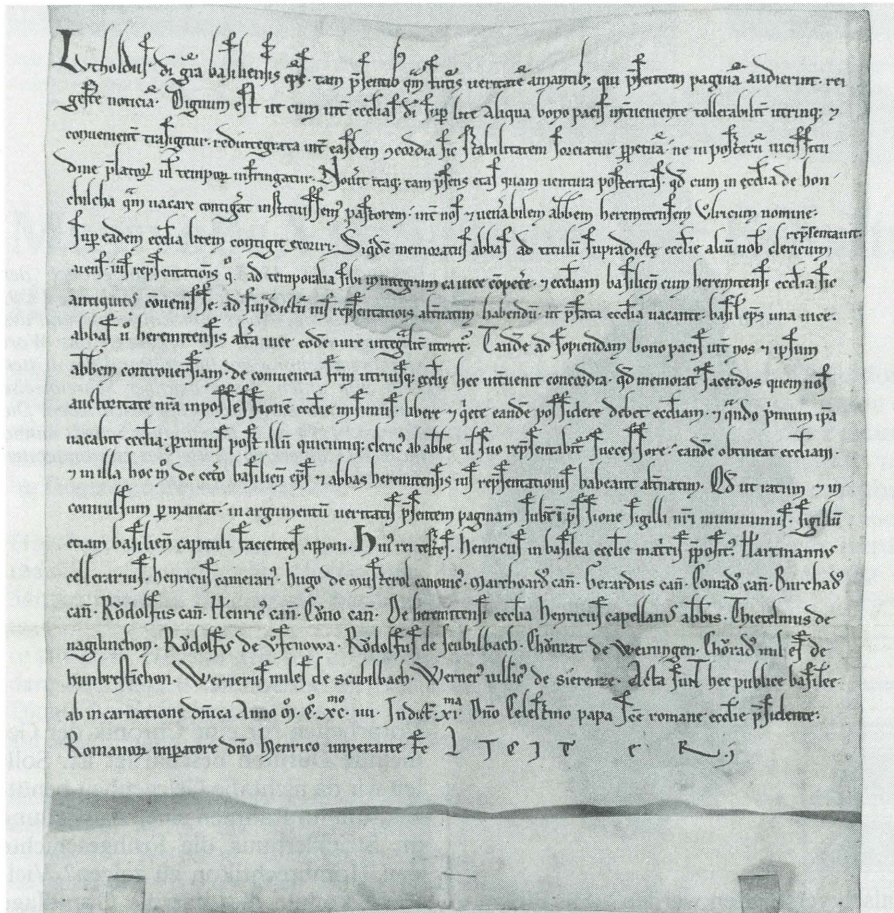 Lutholdus di gra basiliensis eps. tam psentib qm futis veritate amantib; qui psentem pagina audierint. rei
geste noticia. Dignum est ut cum int ecclias di sup lite aliqua bono pacis interveniente tollerabilit utrinq; 7
convenient trasigitur. redintegrata int easdem 7cordia sic stabilitatem sorciatur ppetua. ne in posteru vicissitu
dine platoz ul tempoz infringatur. Noverit itaq; tam psens etas quam ventura posteritas. qd cum in ecclia de hon
chilcha qm vacare contigat instituissem pastorem. int nos 7 venabilem abbem heremitensem Ulricum nomine.
sup eadem ecclia litem contigit exoriri. Siqde memoratus abbas ad titulu supradicte ecclie aliu nob clericum representavit.
avens. ius repsentationis q. ad temporalia sibi in integrum ea vice copete. 7 eccliam basilien cum heremitensi ecclia sic
antiquit convenisse. ad supdictu ius repsentationis altnatim habendu. ut pfata ecclia vacante. basil eps una vice.
abbas u heremitensis alta vice eode iure integralit utet. Tande ad sopiendam bono pacis int nos 7 ipsum
abbem controversiam. de conivencia frm utriusq; ecclie hec intvenit concordia. qd memorat sacerdos quem nos
auctoritate nra in possessione ecclie misimus. libere 7 qete eande possidere debet eccliam. 7 qndo pmum ipa
vacabit ecclia. primus post illu quicumq; cleric ab abbe ul suo repsentabit successore. eande obtineat eccliam.
7 in illa hoc m de ceto basilien eps 7 abbas heremitensis ius repsentationis habeant altnatim. Qd ut ratum 7 in
convulsum pmaneat. in argumentu veritatis psentem paginam sub impssione sigilli nri munivimus. sigillu
etiam basilien capituli facientes apponi. Hui rei testes. Henricus in basilea ecclie matris pposit. Hartmannus
cellerarius. henricus camerari. hugo de musterol canonic. Marchoard can. Gerardus can. Conrad can. Burchad
can. Rodolfus can. Henric can. Cono can. De heremitensi ecclia heynricus capellanus abbis. Thietelmus de
naglinchon. Rodolfus de Usenowa. Rodolfus de scubilbach. Chonrat de weiningen. Chorad miles de
hunbrestichon. Wernerus miles de scubilbach. Werner villic de sierenze. Acta sunt hec publice basilee
ab incarnatione dnica Anno m. c. xc. iiii. Indict. xi. ma Dno Celestino papa sce romane ecclie psidente.
Romanoz impatore dno henrico imperante fe L I C I T E R.;